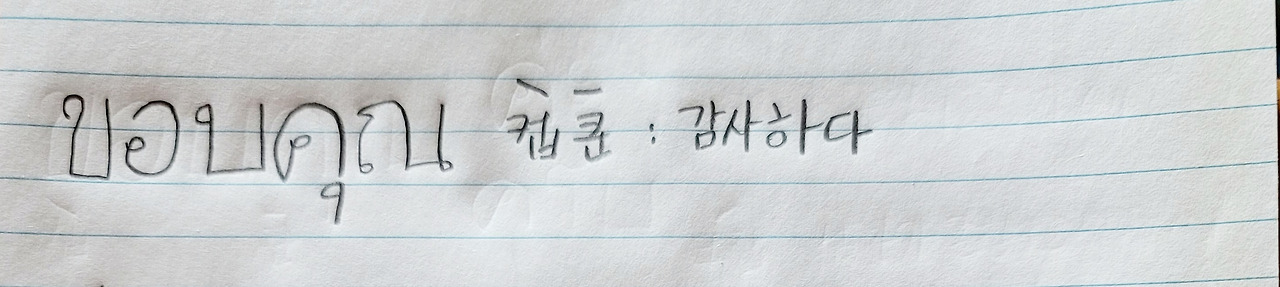 ขอบคุณ 컵쿤 : 감사하다